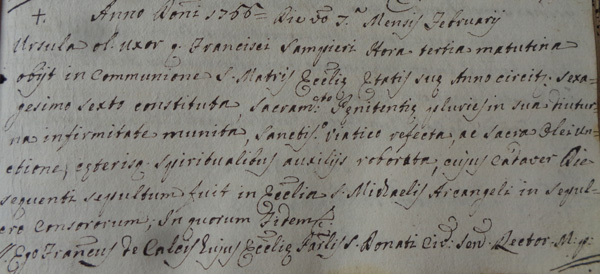 +. Anno Domi 1766= Die vo 7.a Mensis Februarij
Ursula ol. uxor q. Francisci Sampieri Hora tertia matutina
obijt in Communione S. Matris Ecclię Etatis suę Anno circitr. sexa
gesimo sexto constituta, sacramcto Pęnitentię pluries in sua diutur
na infirmitate munita Sanctiso. Viatico refecta, ac Sacra Olei un
ctione, cęterisq. spiritualibus auxilijs roborata, cujus Cadaver Die
sequenti sepultum fuit in Ecclia S. Michaelis Arcangeli in sepul
cro Consororum; In quorum Fidem
Ego Franćus de Calcis hujus Ecclię Parlis S. Donati Civ. Sen. Rector M. pp.